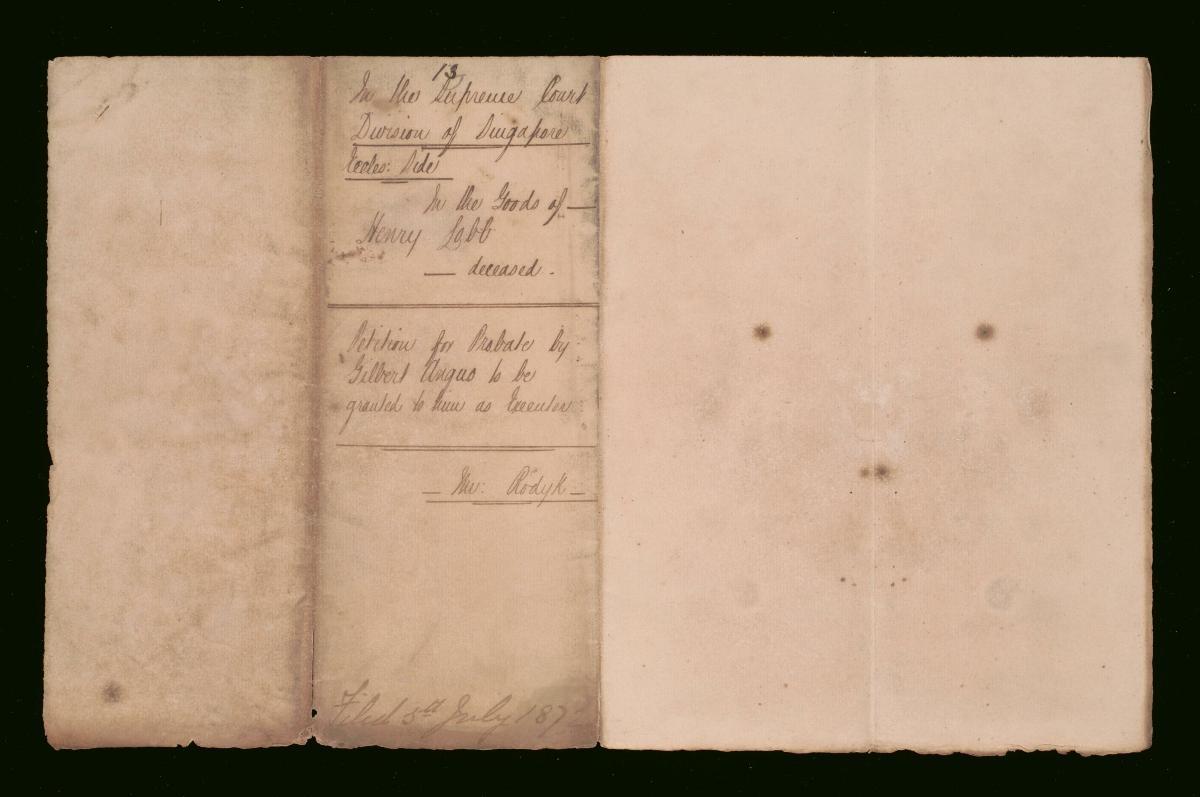 13
In the Supreme Court
Division of Singapore
Eccles: Side
In the Goods of —
Henry Labb
— deceased -
Petition for Probate by
Gilbert Angus to be
granted to him as Executor
— Mr: Rodyk —
Filed 5th July 187